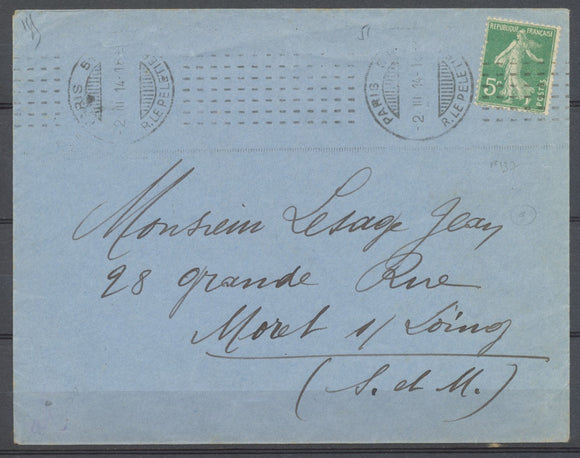 51
PARIS 5
R. LE PELETIE
-2 III 14
PARIS
R. LE PELETIE
-2 III 14
REPUBLIQUE FRANÇAISE
5c
POSTES
n°137
Monsieur Lesage Jean
28 grande Rue
Moret s/ Loing
(S. et M.)